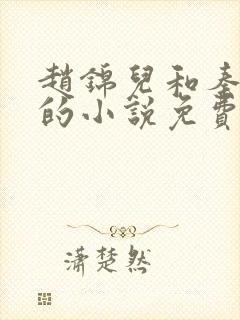 趙錦兒和秦
的小說免費
瀟楚然